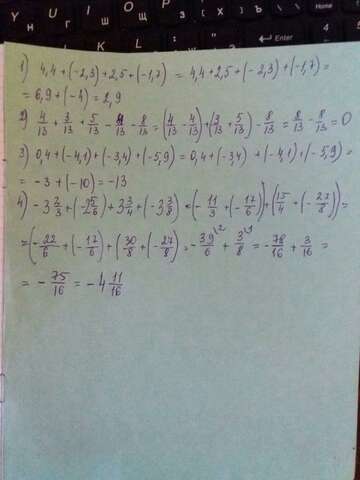 Enter
Shift
1) 4,4+(-2,3)+2,5+(-1,7) = 4,4+2,5+(-2,3)+(-1,7)=
= 6,9+(-4)=2,9
2) 4/13 + 3/13 + 5/13 - 4/13 - 8/13 = (4/13 - 4/13)+(3/13 + 5/13) - 8/13 = 8/13 - 8/13 = 0
3) 0,4+(-4,1)+(-3,4)+(-5,9)=0,4+(-3,4) +(-4,1)+(-5,9)=
= -3+(-10)=-13
4) -3 2/3 +(-2 5/6)+3 3/4+(-3 3/8) = (-11/3 +(-17/6))+(15/4 +(-27/8))=
=(-22/6 +(-17/6)+(30/8 +(-27/8) = -39/6 + 3/8 = -78/16 + 3/16 =
= -75/16 = -4 11/16